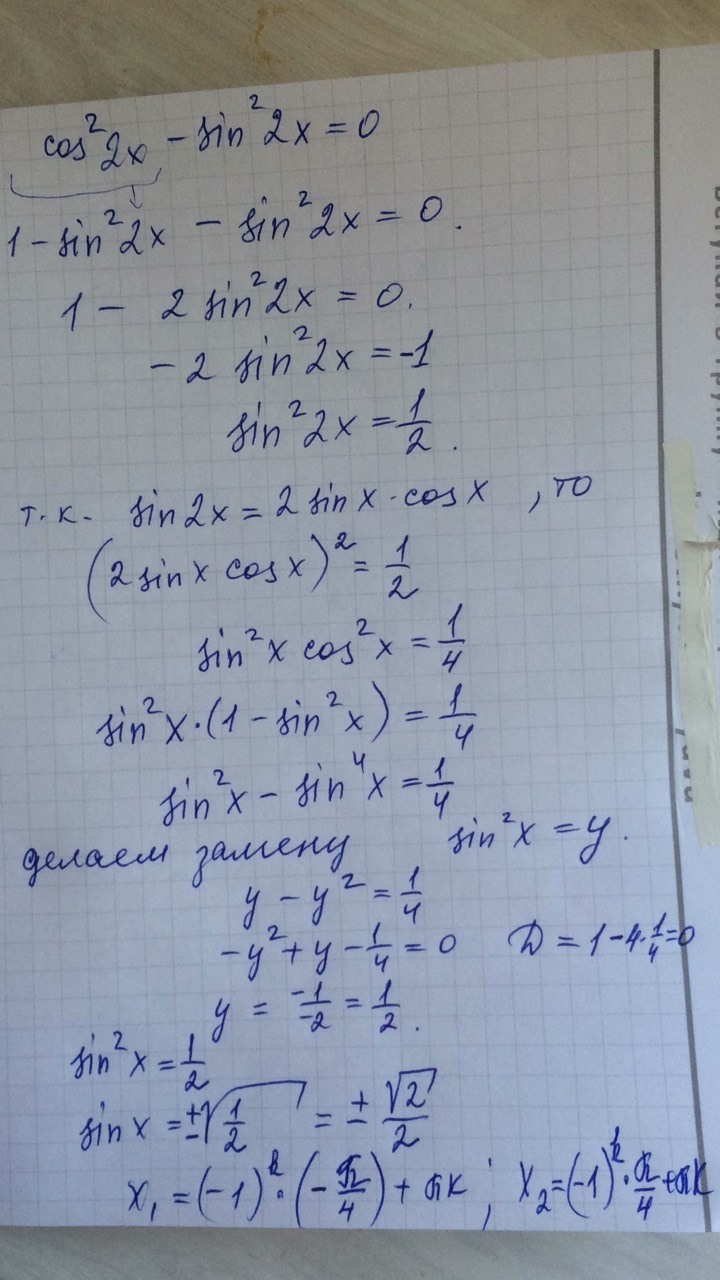 cos²2x − sin²2x = 0
1 − sin²2x − sin²2x = 0.
1 − 2 sin²2x = 0.
− 2 sin²2x = −1
sin²2x = 1/2.
т.к. sin2x = 2 sinx · cosx , то
(2 sinx cosx)² = 1/2
sin²x cos²x = 1/4
sin²x·(1 − sin²x) = 1/4
sin²x − sin⁴x = 1/4
делаем замену sin²x = y.
y − y² = 1/4
−y² + y − 1/4 = 0 D = 1 − 4·1/4 = 0
y = −1/−2 = 1/2.
sin²x = 1/2
sinx = ±√(1/2) = ± √2/2
x₁ = (−1)ᵏ·(−π/4) + πk ; x₂ = (−1)ᵏ·π/4 + πk